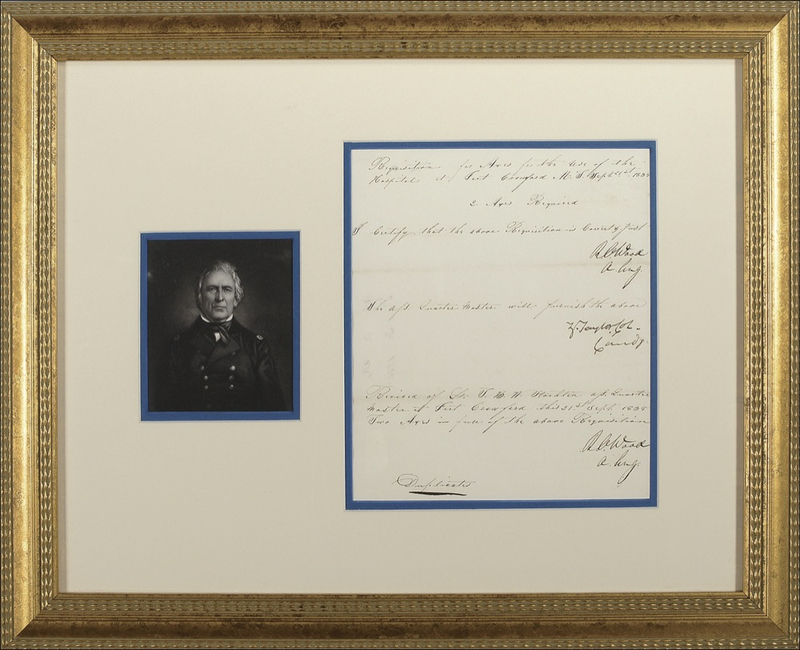 Requisition for Axes for the use of the
Hospital at Fort Crawford M. T. Sept 21st
2 Axes Required
I Certify that the above Requisition is Correct & Just
R C Wood
A. Surg.
The ass. Quarter Master will furnish the above
Z. Taylor Col.
Comdg.
Received of Lt. T. B. W. Stockton ass. Quarter
Master at Fort Crawford this 21st Sept. 1835
Two Axes in full of the above Requisition
R C. Wood
A. Surg.
Duplicates